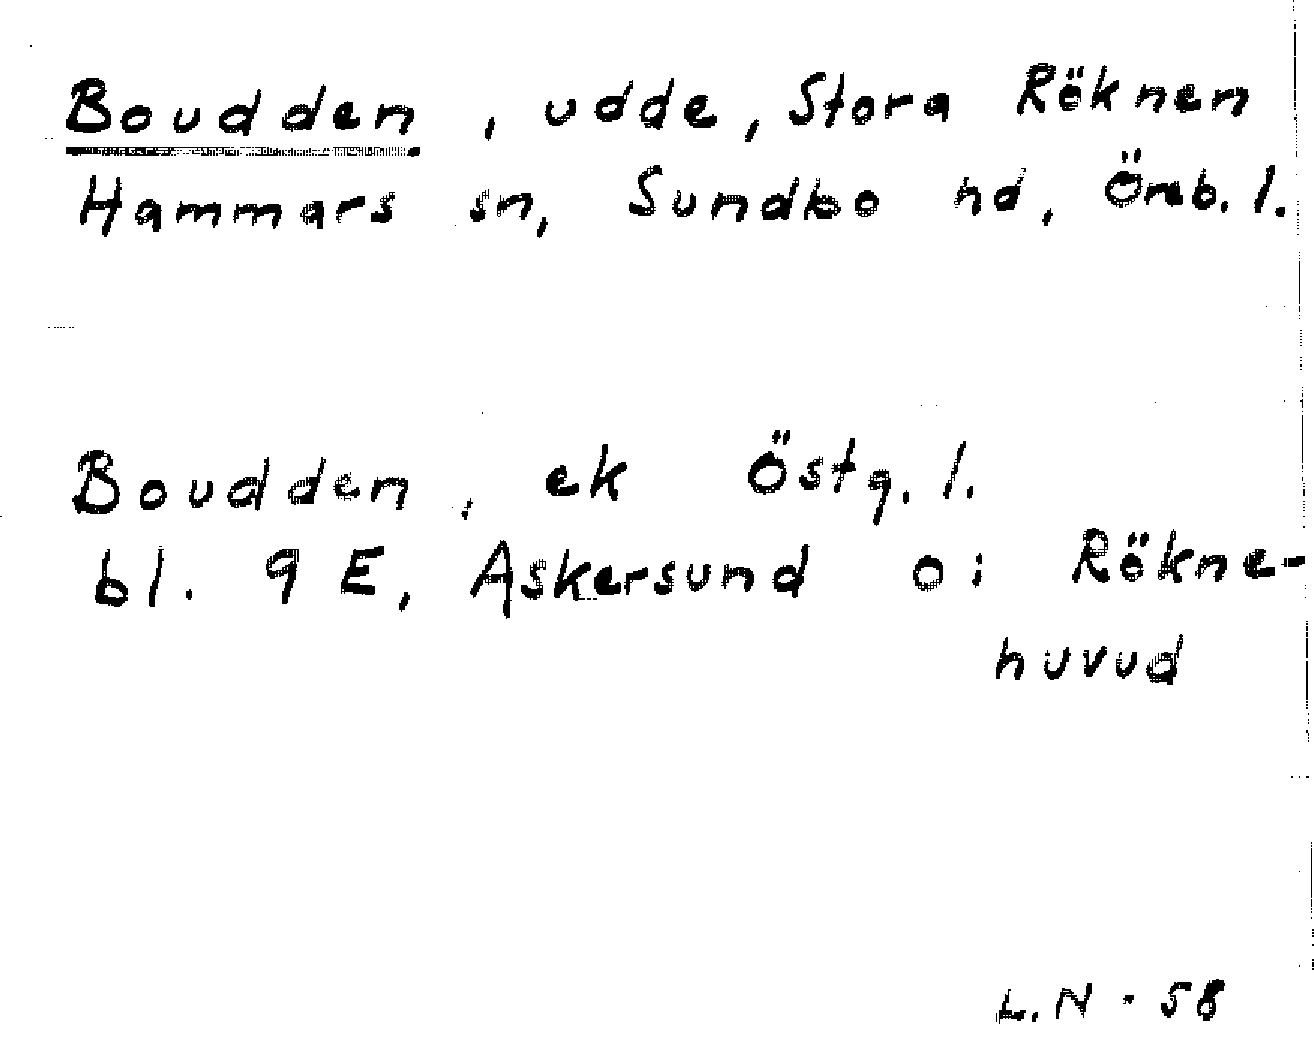 Boudden, udde, Stora Röknen
Hammars sn, Sundbo hd, Öreb. l.
Boudden, ek Östg. l.
bl. 9 E, Askersund o: Rökne-
huvud
L. N - 58